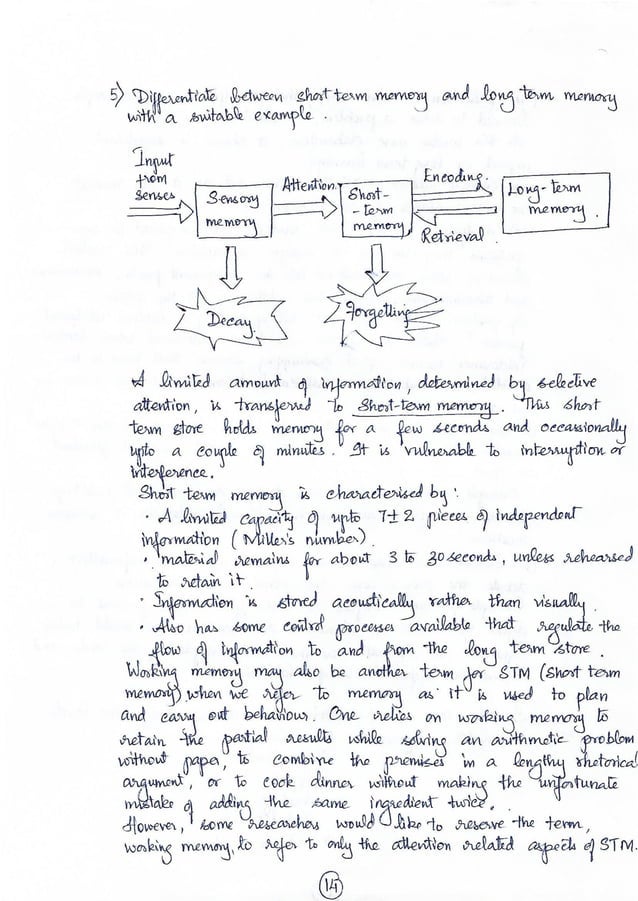 5) Differentiate between short term memory and long term memory
with a suitable example.
Input
from
senses
Sensory
memory
Attention
Short-
-term
memory
Encoding.
Retrieval
Long-term
memory.
Decay
Forgetting
A limited amount of information, determined by selective
attention, is transferred to Short-term memory. This short
term store holds memory for a few seconds and occassionally
upto a couple of minutes. It is vulnerable to interruption or
interference.
Short term memory is characterised by:
· A limited capacity of upto 7±2 pieces of independent
information (Miller's number).
· material remains for about 3 to 30 seconds, unless rehearsed
to retain it.
· Information is stored acoustically rather than visually.
· Also has some control processes available that regulate the
flow of information to and from the long term store.
Working memory may also be another term for STM (short term
memory) when we refer to memory as it is used to plan
and carry out behaviour. One relies on working memory to
retain the partial results while solving an arithmetic problem
without paper, to combine the premises in a lengthy rhetorical
argument, or to cook dinner without making the unfortunate
mistake of adding the same ingredient twice.
However, some researchers would like to reserve the term,
working memory, to refer to only the attention related aspects of STM.
14